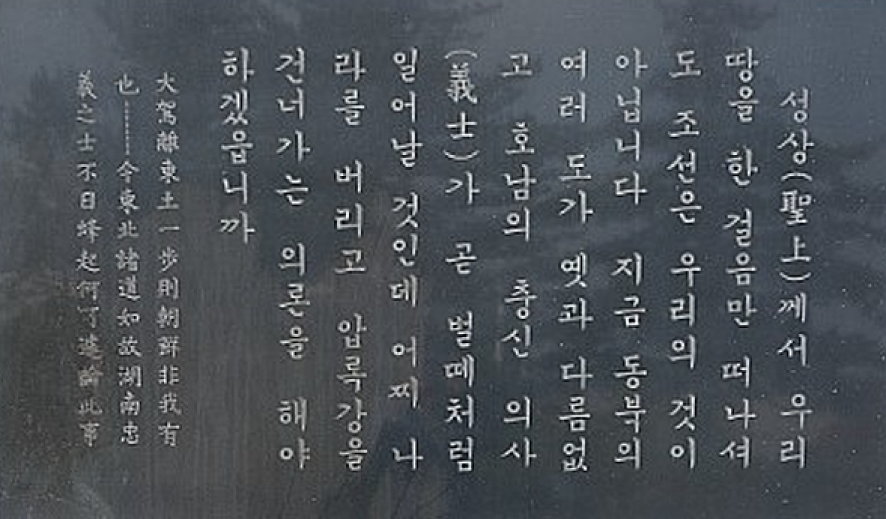 성상(聖上)께서 우리
땅을 한 걸음만 떠나셔
도 조선은 우리의 것이
아닙니다 지금 동북의
여러 도가 옛과 다름없
고 호남의 충신 의사
(義士)가 곧 벌떼처럼
일어날 것인데 어찌 나
라를 버리고 압록강을
건너가는 의론을 해야
하겠읍니까
大駕離東土一步則朝鮮非我有
也……今東北諸道如故湖南忠
義之士不日蜂起何可遽論此事